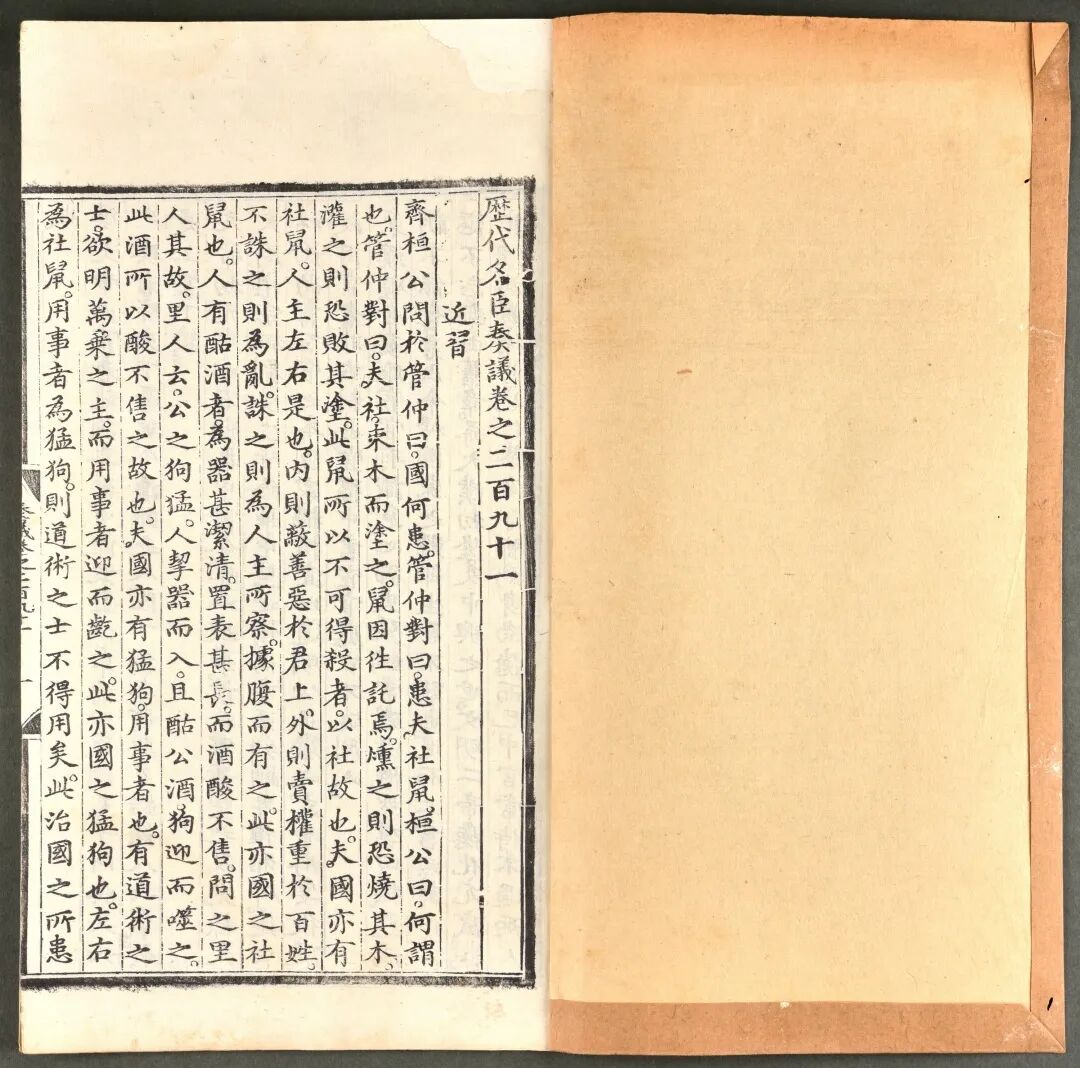 歷代名臣奏議卷之二百九十一
近習
齊桓公問於管仲曰。國何患。管仲對曰。患夫社鼠。桓公曰。何謂
也。管仲對曰。夫社。束木而塗之。鼠因徃託焉。燻之則恐燒其木。
灌之則恐敗其塗。此鼠所以不可得殺者。以社故也。夫國亦有
社鼠。人主左右是也。內則蔽善惡於君上。外則賣權重於百姓。
不誅之則為亂。誅之則為人主所察。據腹而有之。此亦國之社
鼠也。人有酤酒者。為器甚潔清。置表甚長。而酒酸不售。問之里
人其故。里人云。公之狗猛。人挈器而入。且酤公酒。狗迎而噬之。
此酒所以酸不售之故也。夫國亦有猛狗。用事者也。有道術之
士。欲明萬乗之主。而用事者迎而齕之。此亦國之猛狗也。左右
為社鼠。用事者為猛狗。則道術之士不得用矣。此治國之所患
奏議卷之二百九十一
一